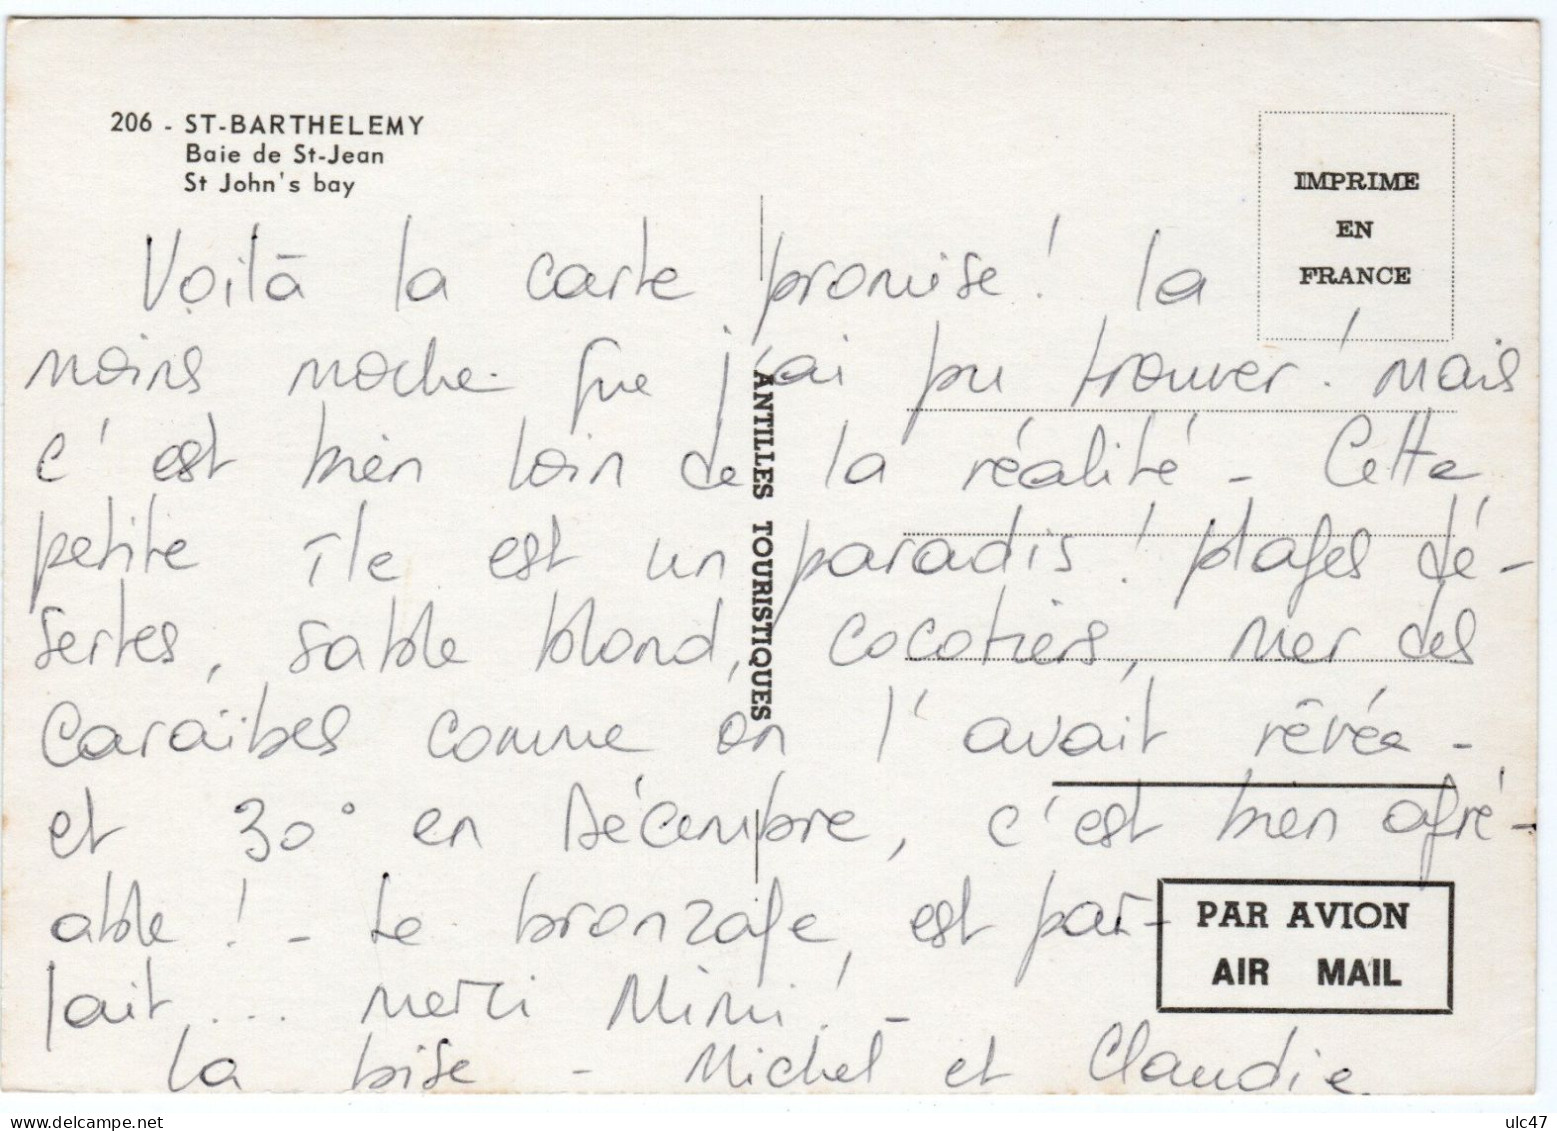 206 - ST-BARTHELEMY
Baie de St-Jean
St John's bay
IMPRIME
EN
FRANCE
Voilà la carte promise ! la
moins moche que j'ai pu trouver ! Mais
c'est bien loin de la réalité - Cette
petite île est un paradis ! plages dé-
sertes, sable blond, cocotiers, mer des
Caraïbes comme on l'avait rêvée -
et 30° en Décembre, c'est bien agré-
able ! - Le bronzage, est par-
fait ... merci Mimi ! -
La bise - Michel et Claudie
ANTILLES TOURISTIQUES
PAR AVION
AIR MAIL
ulc47